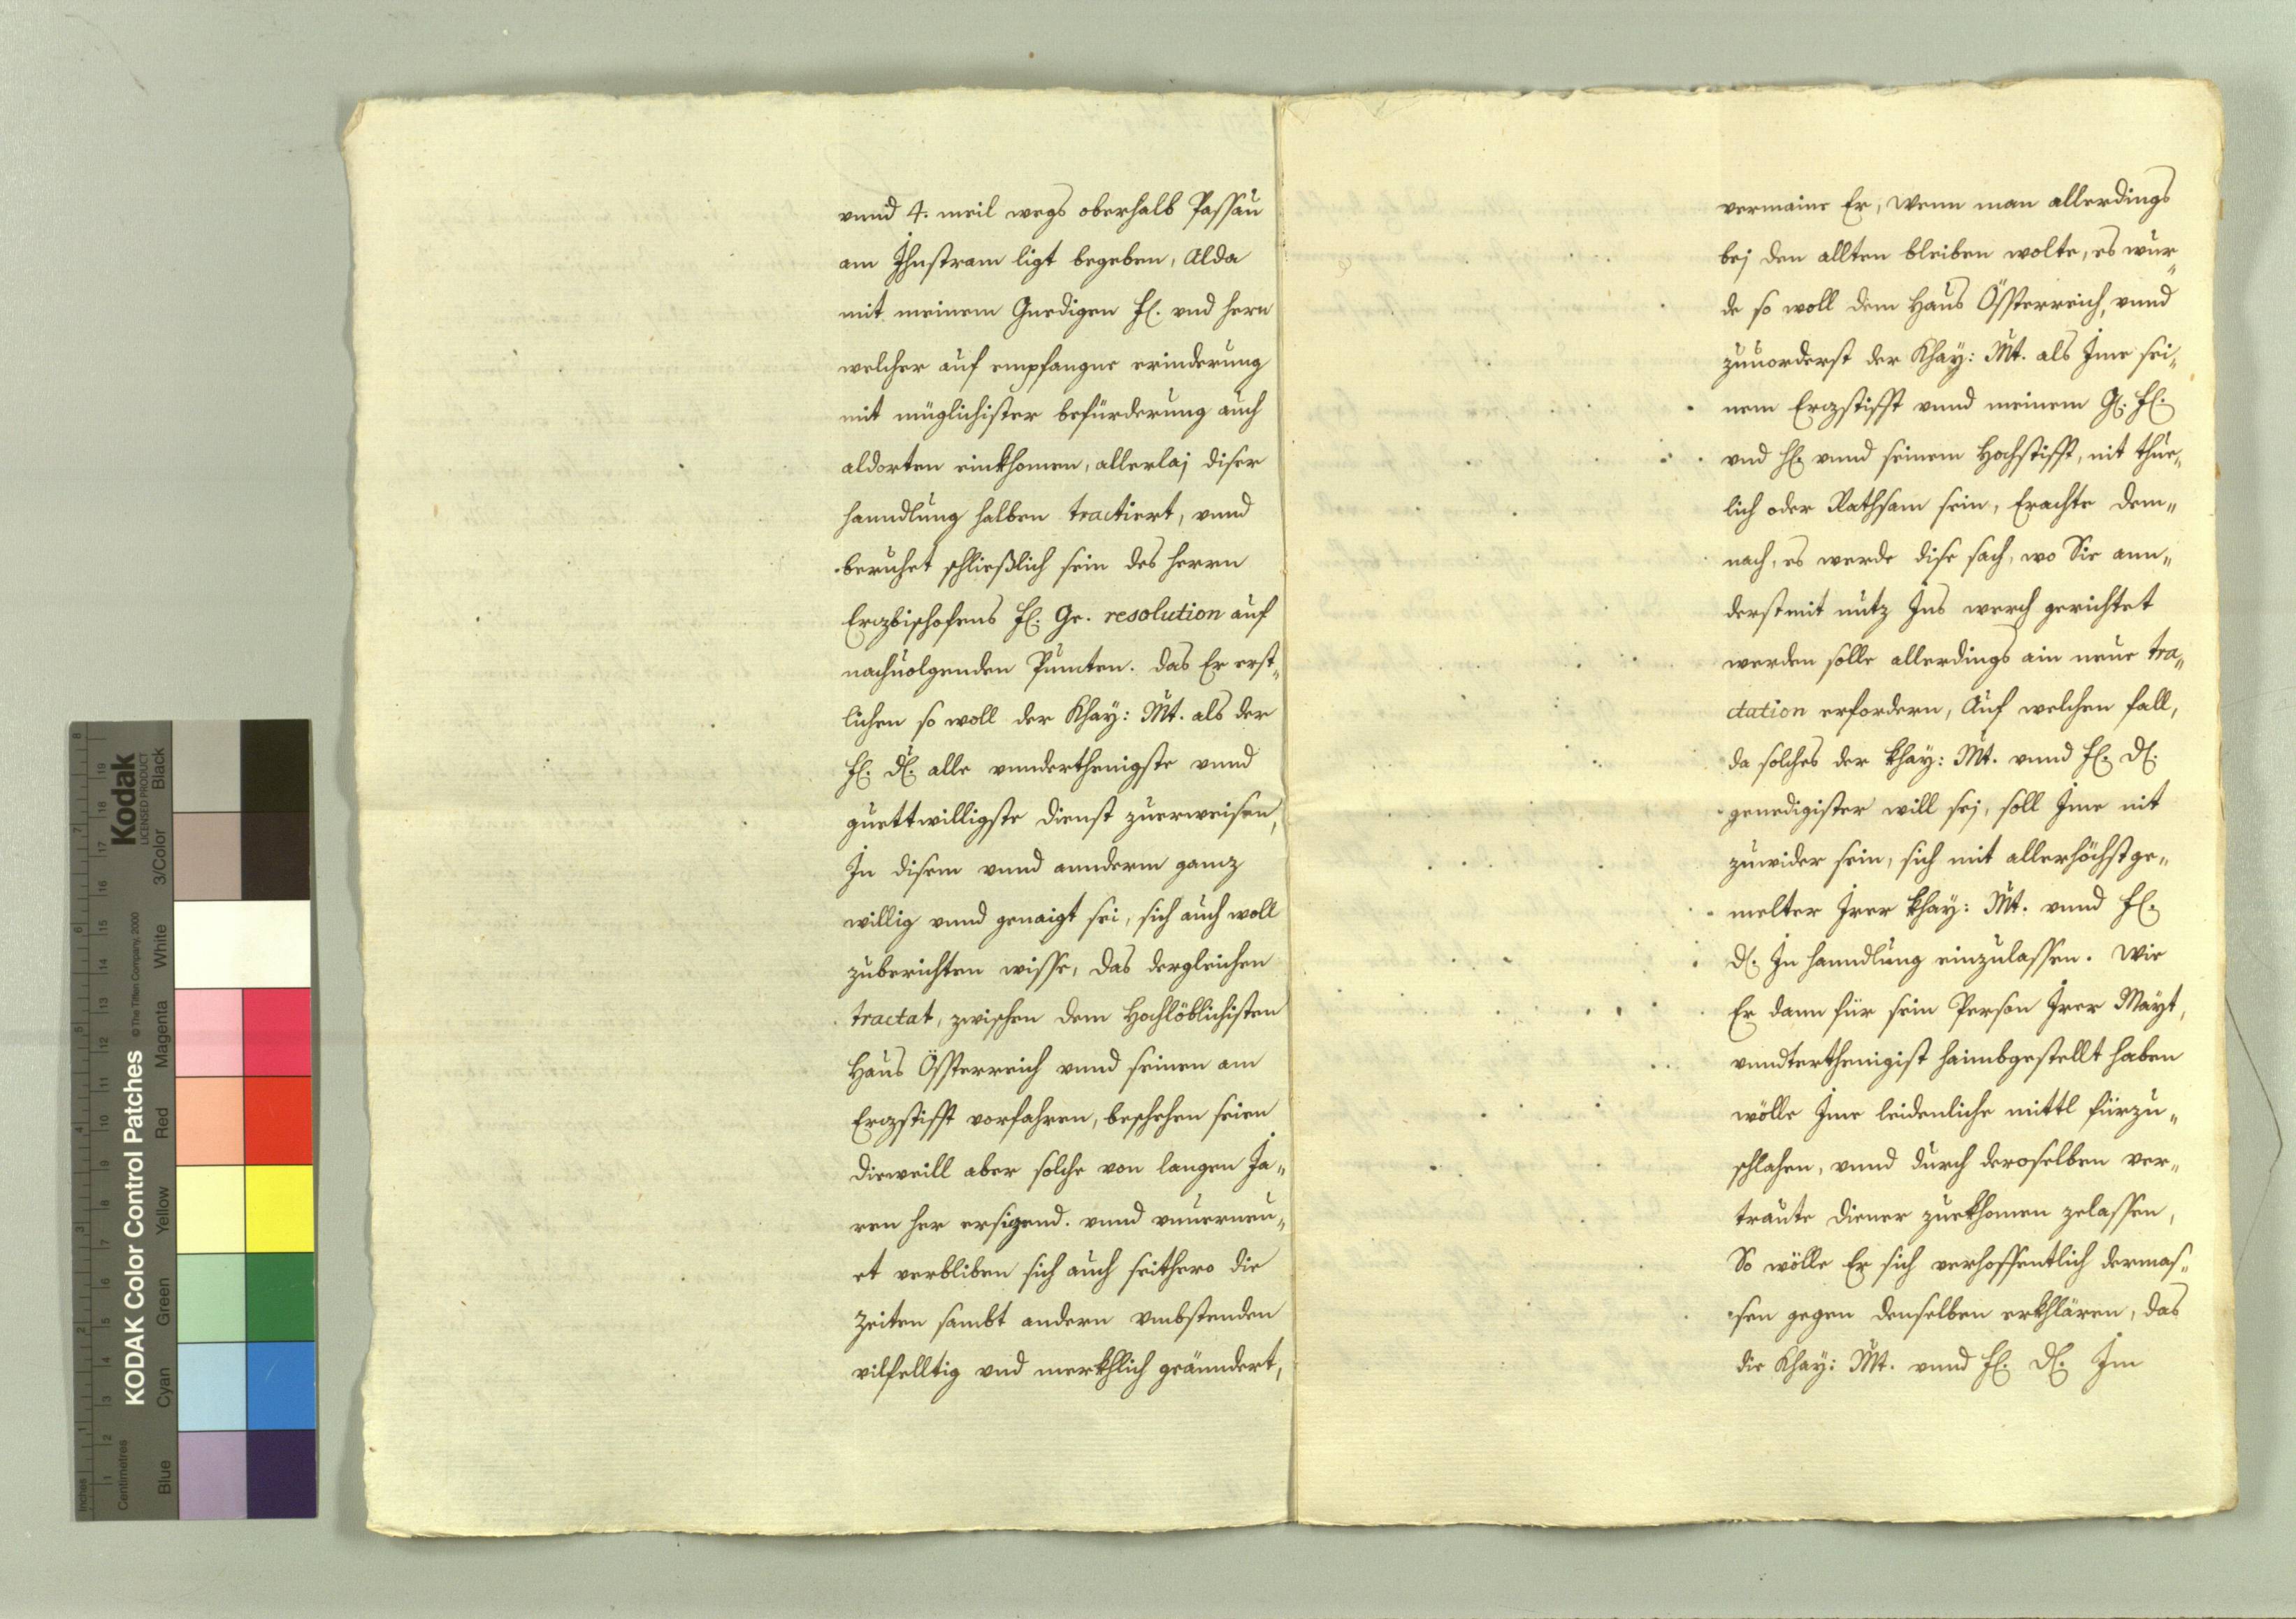 vnnd 4. meil wegs oberhalb Passau
am Ihnstram ligt begeben, Alda
mit meinem Gnedigen f. vnd hern
welcher auf empfangne erinderung
mit müglichister befürderung auch
aldorten einkhomen, allerlaj diser
hanndlung halben tractiert, vnnd
beruhet schließlich sein des herrn
Erzbischofens f. Gr. resolution auf
nachuolgenden Puncten. Das Er erst„
lichen so woll der Khay: Mt. als der
f. d. alle vnnderthenigste vnnd
guettwilligste dienst zuerweisen,
In disem vnnd annderm gannz
willig vnnd genaigt sei, sich auch woll
zuberichten wisse, das dergleichen
tractat, zwischen dem Hochlöblichisten
Haus Össterreich vnnd seinen am
Erzstifft vorfahren, beschehen seien
Dieweill aber solche von langen Ja„
ren her ersizend. vnnd vnuerneu„
et verbliben sich auch seithero die
zeiten sambt andern vmbstenden
vilfelltig vnd merkhlich geänndert,
vermaine Er, wenn man allerdings
bej den allten bleiben wolte, es wur„
de so woll dem Haus Össterreich, vnnd
zuuorderst der Khay: Mt. als Ime sei„
nem Erzstifft vnnd meinem G. f.
vnd H. vnnd seinem Hochstifft, nit thue„
lich oder Rathsam sein, Erachte dem„
nach, es werde dise sach, wo Sie ann„
derst mit nutz Ins werch gerichtet
werden solle allerdings ain neue tra„
ctation erfordern, Auf welchen fall,
da solches der khay: Mt. vnnd f. d.
genedigister will sej, soll Ime nit
zuwider sein, sich mit allerhöchstge„
melter Irer khay: Mt. vnnd f.
d. In hanndlung einzulassen. Wie
Er dann für sein Person Irer Mayt,
vnndterthenigist haimbgestellt haben
wölle Ime leidenliche mittl fürzu„
schlahen, vnnd durch deroselben ver„
traute diener zuekhomen zelassen,
So wölle Er sich verhoffentlich dermas„
sen gegen denselben erkhlären, das
die Khay: Mt. vnnd f. d. Im
KODAK Color Control Patches
© The Tiffen Company, 2000
Kodak
LICENSED PRODUCT
Inches
Centimetres
Blue
Cyan
Green
Yellow
Red
Magenta
White
3/Color
Black